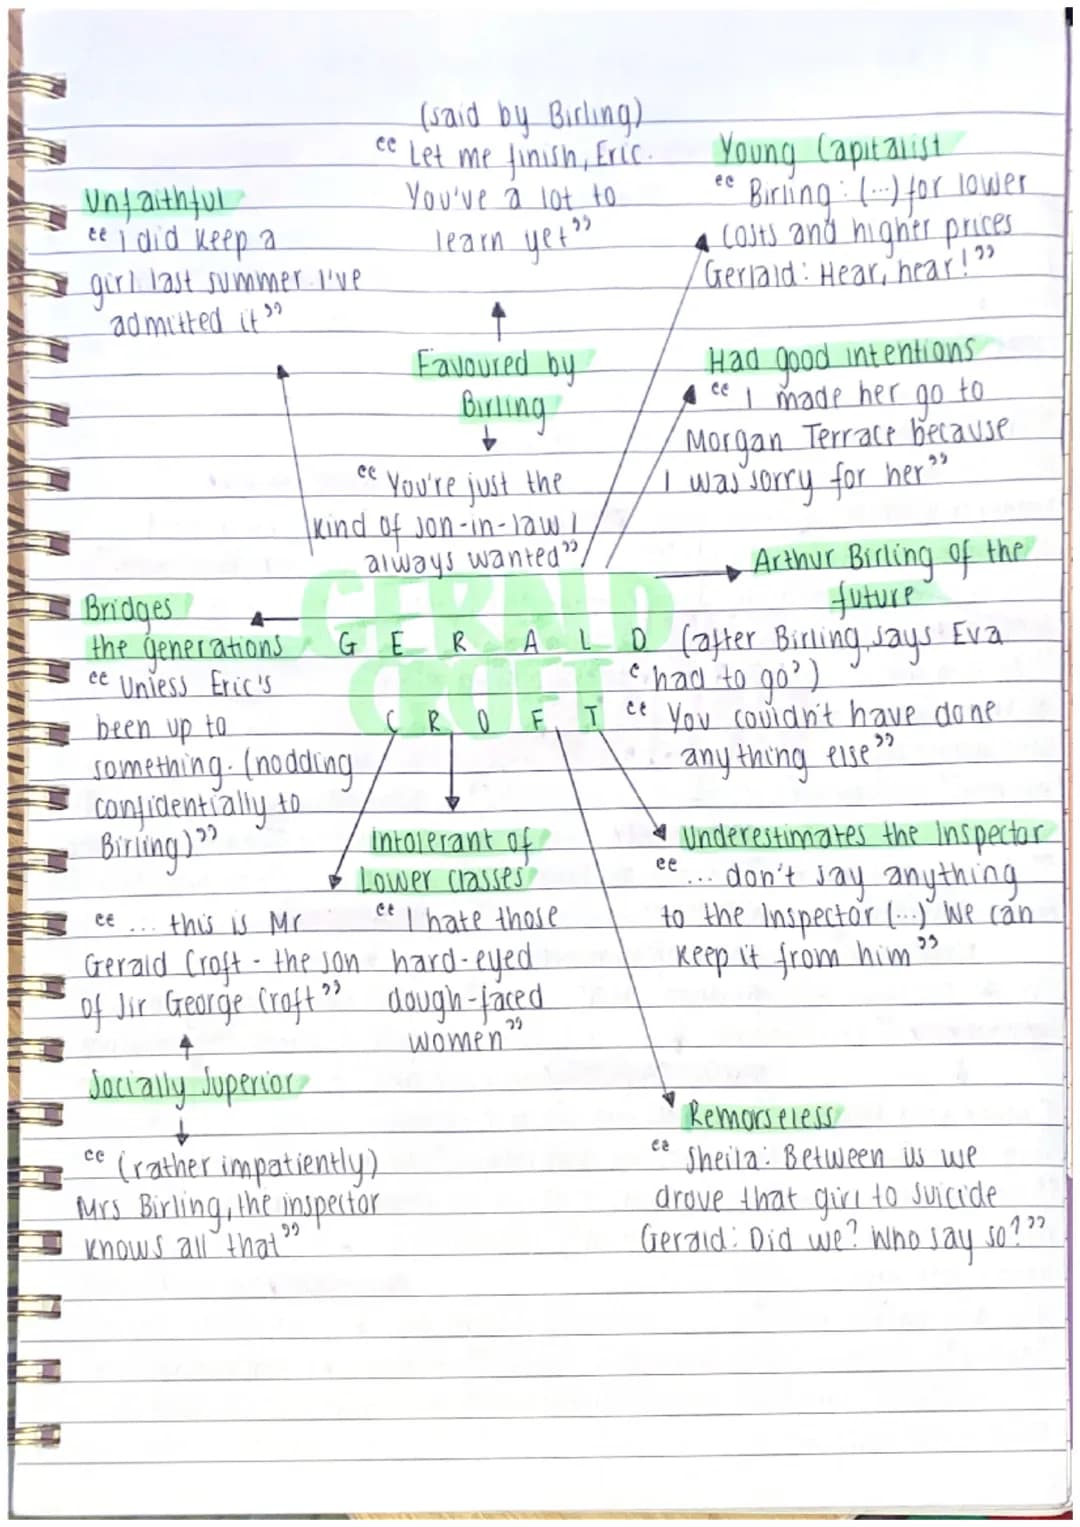 (said by Birling)
“ Let me finish, Eric.
You've a lot to
learn yet”
Young Capitalist
“ Birling : (...) for lower
costs and higher prices
Gerlald : Hear, hear!”
Unfaithful
“ I did keep a
girl last summer. I've
admitted it”
Favoured by
Birling
“ You're just the
kind of son-in-law I
always wanted”
Had good intentions
“ I made her go to
Morgan Terrace because
I was sorry for her”
Arthur Birling of the
future
(after Birling says Eva
‘had to go’)
“ You couldn't have done
anything else”
GERALD
CROFT
G E R A L D
C R O F T
Bridges
the generations
“ Unless Eric's
been up to
something. (nodding
confidentially to
Birling)”
Intolerant of
Lower classes
“ I hate those
hard-eyed
dough-faced
women”
Underestimates the Inspector
“ ... don't say anything
to the Inspector (...) We can
keep it from him”
“ ... this is Mr
Gerald Croft - the son
of Sir George Croft”
Socially Superior
“ (rather impatiently)
Mrs Birling, the inspector
knows all that”
Remorseless
“ Sheila : Between us we
drove that girl to suicide
Gerald : Did we? Who say so?”